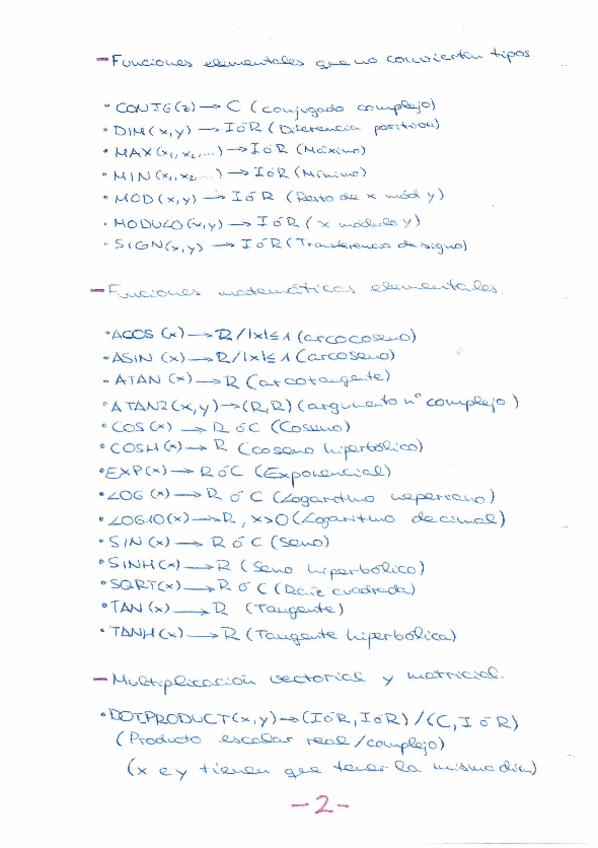 - Funciones elementales que no convierten tipos
• CONJG(z) → C (conjugado complejo)
• DIM(x,y) → I ó R (Diferencia positiva)
• MAX(x₁,x₂,...) → I ó R (Máximo)
• MIN(x₁,x₂,...) → I ó R (Mínimo)
• MOD(x,y) → I ó R (Resto de x mód y)
• MODULO(x,y) → I ó R (x módulo y)
• SIGN(x,y) → I ó R (Transferencia de signo)
- Funciones matemáticas elementales.
• ACOS (x) → R/|x|≤1 (arcocoseno)
• ASIN (x) → R/|x|≤1 (arcoseno)
• ATAN (x) → R (arcotangente)
• ATAN2(x,y) → (R,R) (argumento nº complejo)
• COS(x) → R ó C (Coseno)
• COSH(x) → R (coseno hiperbólico)
• EXP(x) → R ó C (Exponencial)
• LOG (x) → R ó C (Logaritmo neperiano)
• LOG10(x) → R, x>0 (Logaritmo decimal)
• SIN (x) → R ó C (Seno)
• SINH(x) → R (Seno hiperbólico)
• SQRT(x) → R ó C (Raíz cuadrada)
• TAN (x) → R (Tangente)
• TANH(x) → R (Tangente hiperbólica)
- Multiplicación vectorial y matricial.
• DOT_PRODUCT(x,y) → (I ó R, I ó R) / (C, I ó R)
(Producto escalar real/complejo)
(x e y tienen que tener la misma dim)
- 2 -